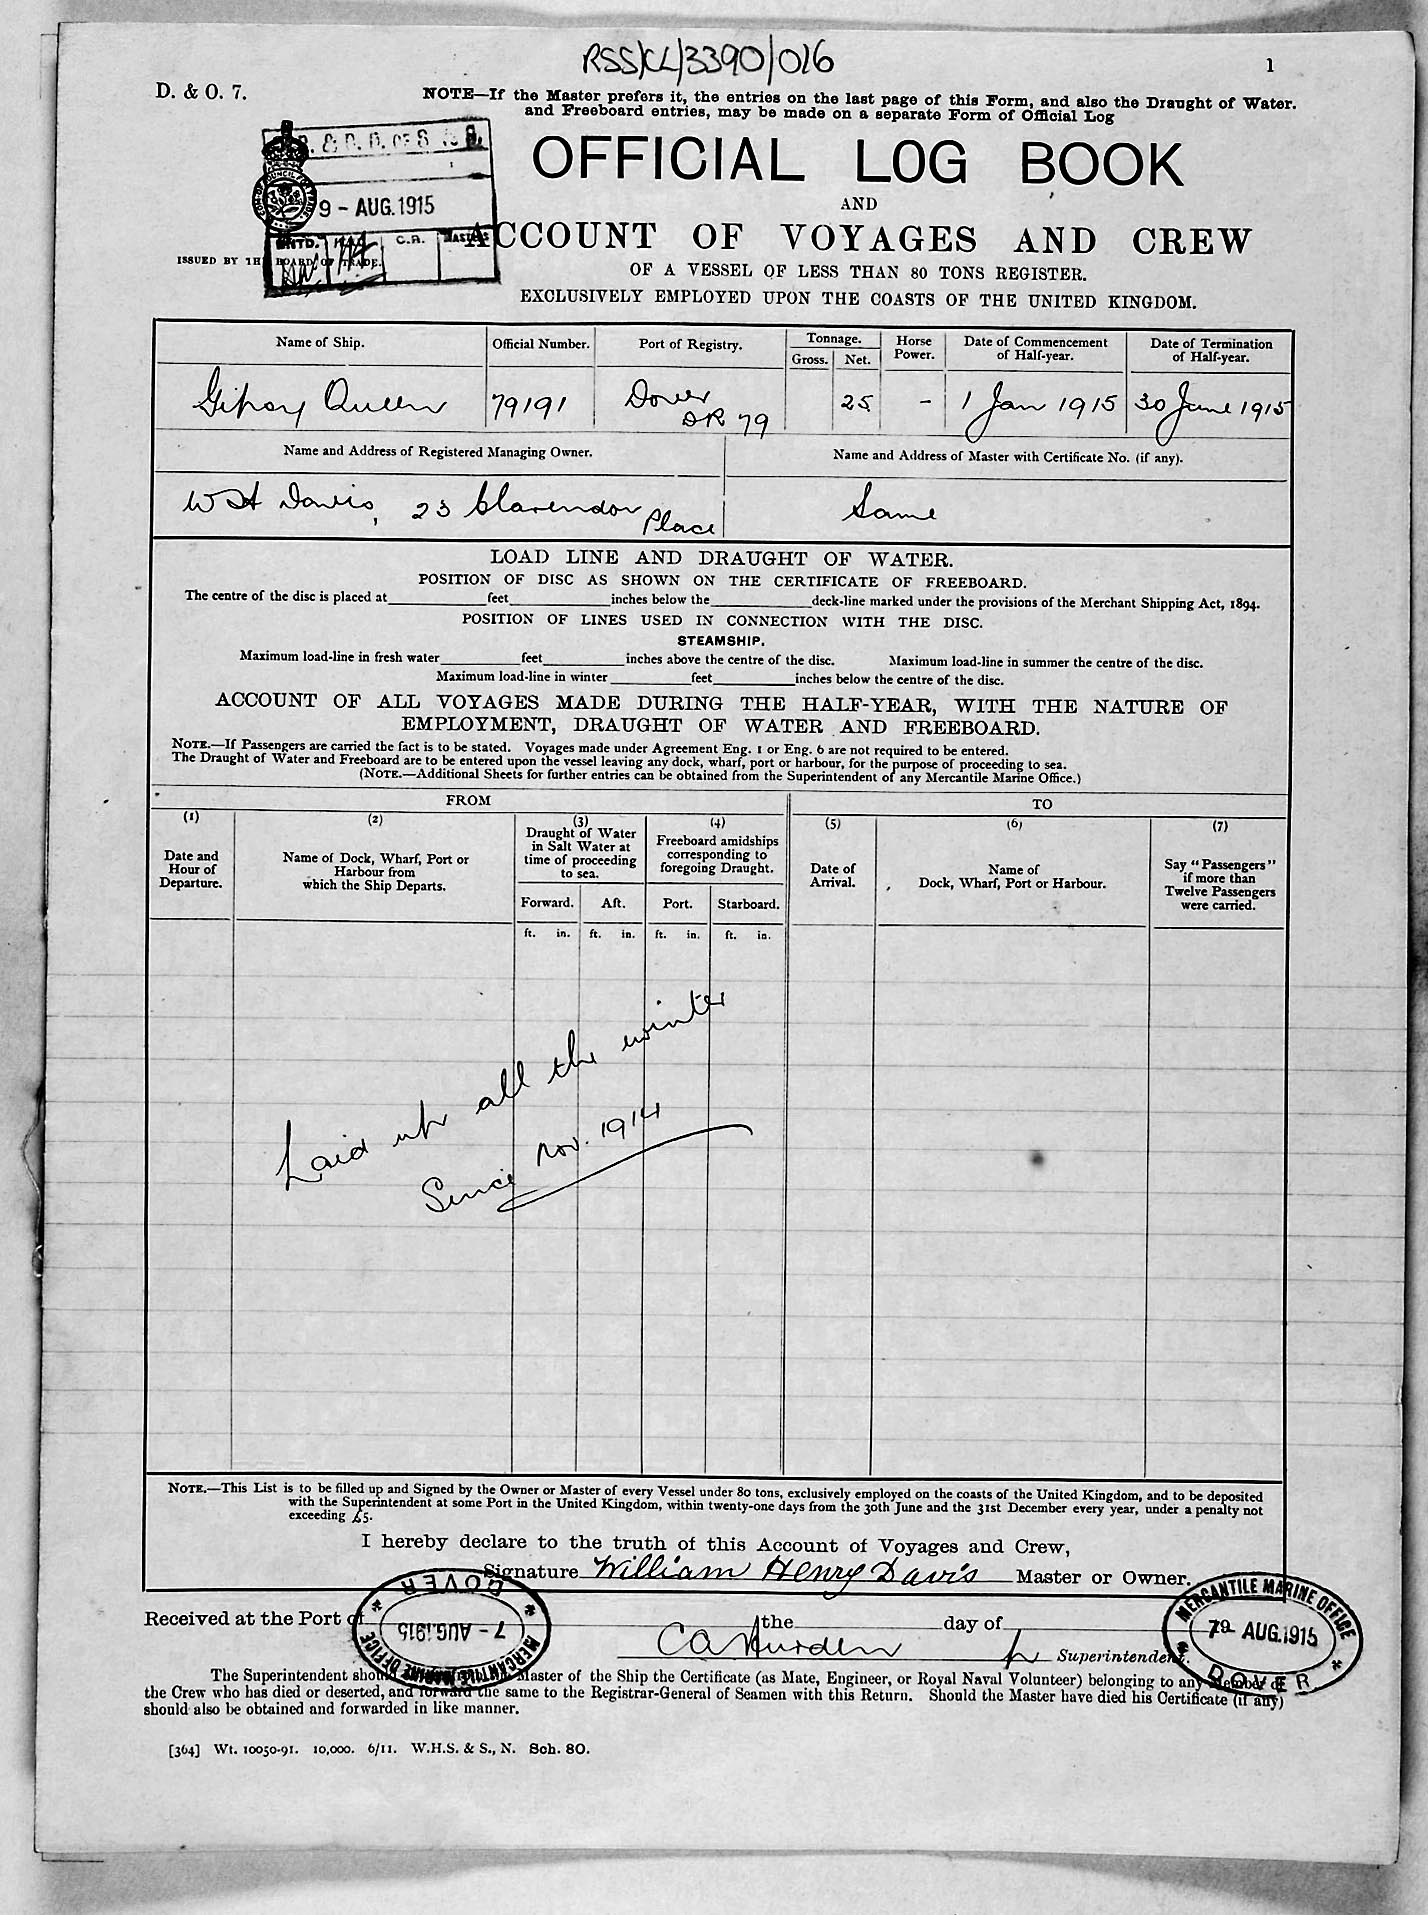 RSS/CL/3390/016
1
D. & O. 7.
NOTE—If the Master prefers it, the entries on the last page of this Form, and also the Draught of Water.
and Freeboard entries, may be made on a separate Form of Official Log
9 - AUG. 1915
C.R.
ISSUED BY THE BOARD OF TRADE.
OFFICIAL LOG BOOK
AND
ACCOUNT OF VOYAGES AND CREW
OF A VESSEL OF LESS THAN 80 TONS REGISTER.
EXCLUSIVELY EMPLOYED UPON THE COASTS OF THE UNITED KINGDOM.
Name of Ship. Official Number. Port of Registry. Tonnage. Horse Power. Date of Commencement of Half-year. Date of Termination of Half-year.
Gross. Net.
Gipsy Queen 79191 Dover DR 79 25 - 1 Jan 1915 30 June 1915
Name and Address of Registered Managing Owner. Name and Address of Master with Certificate No. (if any).
W H Davis, 23 Clarendon Place Same
LOAD LINE AND DRAUGHT OF WATER.
POSITION OF DISC AS SHOWN ON THE CERTIFICATE OF FREEBOARD.
The centre of the disc is placed at feet inches below the deck-line marked under the provisions of the Merchant Shipping Act, 1894.
POSITION OF LINES USED IN CONNECTION WITH THE DISC.
STEAMSHIP.
Maximum load-line in fresh water feet inches above the centre of the disc. Maximum load-line in summer the centre of the disc.
Maximum load-line in winter feet inches below the centre of the disc.
ACCOUNT OF ALL VOYAGES MADE DURING THE HALF-YEAR, WITH THE NATURE OF
EMPLOYMENT, DRAUGHT OF WATER AND FREEBOARD.
NOTE.—If Passengers are carried the fact is to be stated. Voyages made under Agreement Eng. 1 or Eng. 6 are not required to be entered.
The Draught of Water and Freeboard are to be entered upon the vessel leaving any dock, wharf, port or harbour, for the purpose of proceeding to sea.
(NOTE.—Additional Sheets for further entries can be obtained from the Superintendent of any Mercantile Marine Office.)
FROM TO
(1) (2) (3) (4) (5) (6) (7)
Date and Hour of Departure.
Name of Dock, Wharf, Port or Harbour from which the Ship Departs.
Draught of Water in Salt Water at time of proceeding to sea.
Freeboard amidships corresponding to foregoing Draught.
Date of Arrival.
Name of Dock, Wharf, Port or Harbour.
Say "Passengers" if more than Twelve Passengers were carried.
Forward. Aft. Port. Starboard.
ft. in. ft. in. ft. in. ft. in.
Laid up all the winter
Since Nov. 1914
NOTE.—This List is to be filled up and Signed by the Owner or Master of every Vessel under 80 tons, exclusively employed on the coasts of the United Kingdom, and to be deposited
with the Superintendent at some Port in the United Kingdom, within twenty-one days from the 30th June and the 31st December every year, under a penalty not
exceeding £5.
I hereby declare to the truth of this Account of Voyages and Crew,
Signature William Henry Davis Master or Owner.
Received at the Port of the day of
MERCANTILE MARINE OFFICE
7 - AUG. 1915
DOVER
MERCANTILE MARINE OFFICE
AUG. 1915
DOVER
Superintendent.
The Superintendent should Master of the Ship the Certificate (as Mate, Engineer, or Royal Naval Volunteer) belonging to any Member of
the Crew who has died or deserted, and forward the same to the Registrar-General of Seamen with this Return. Should the Master have died his Certificate (if any)
should also be obtained and forwarded in like manner.
[364] Wt. 10050-91. 10,000. 6/11. W.H.S. & S., N. Sch. 80.